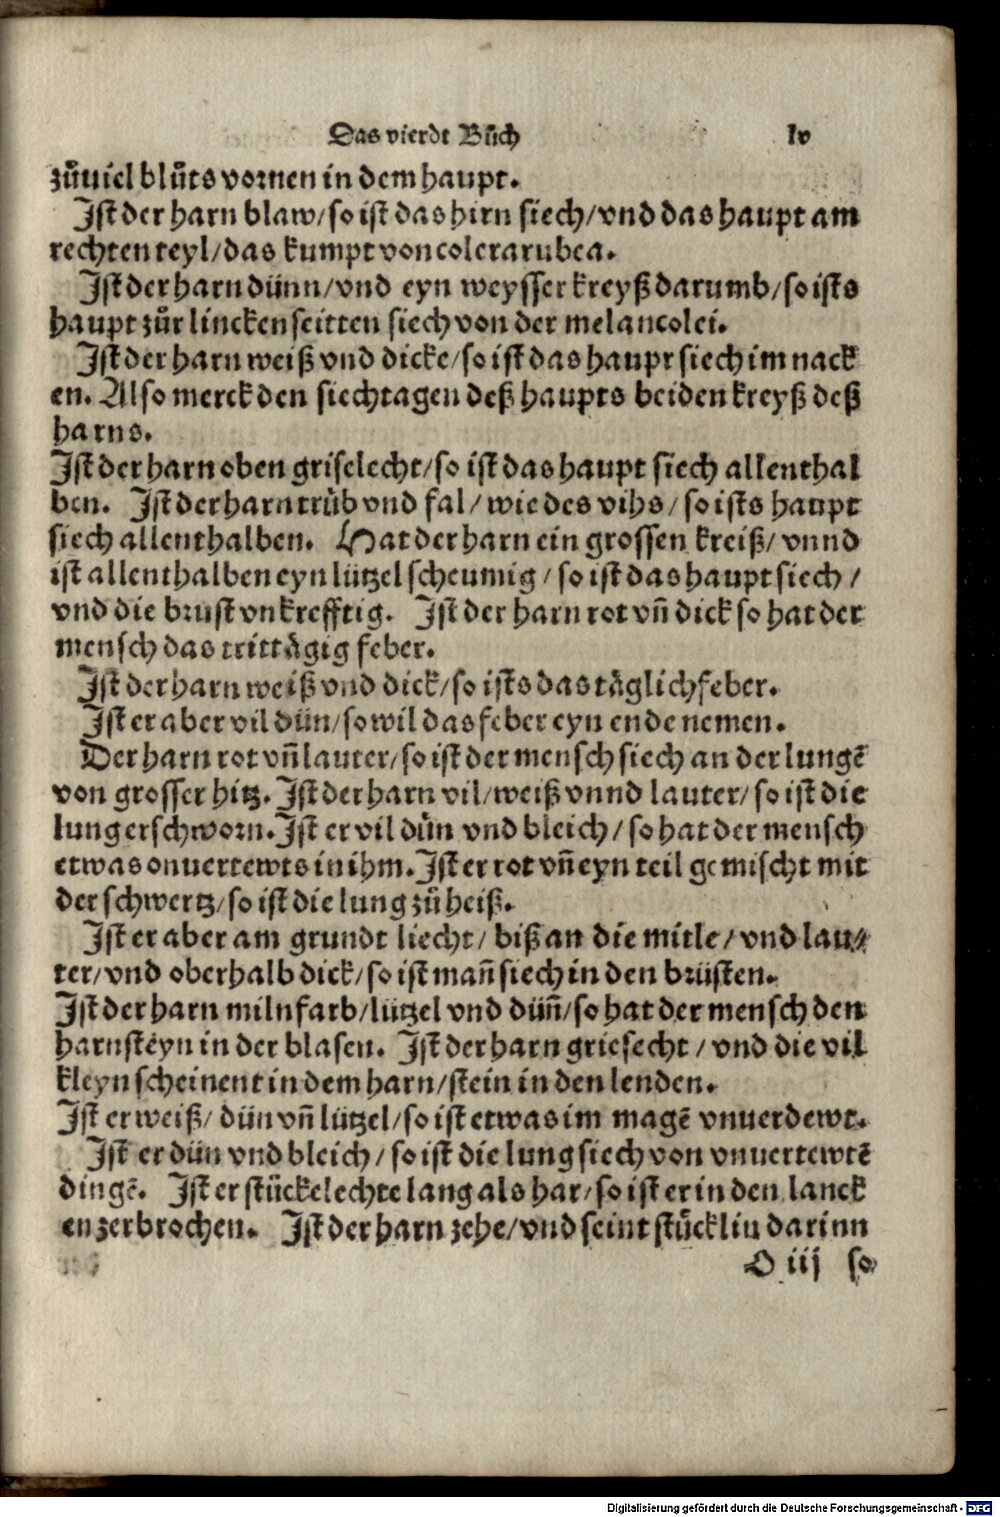 Das vierdt Bůch lv
zůuiel blůts vornen in dem haupt.
Ist der harn blaw/so ist das hirn siech/vnd das haupt am
rechten teyl/das kumpt von colera rubea.
Ist der harn dünn/vnd eyn weysser kreyß darumb/so ists
haupt zůr lincken seitten siech von der melancolei.
Ist der harn weiß vnd dicke/so ist das haupt siech im nack
en. Also merck den siechtagen deß haupts bei den kreyß deß
harns.
Ist der harn oben griselecht/so ist das haupt siech allenthal
ben. Ist der harn trüb vnd fal/wie des vihs/so ists haupt
siech allenthalben. Hat der harn ein grossen kreiß/vnnd
ist allenthalben eyn lützel scheumig/so ist das haupt siech/
vnd die brust vnkrefftig. Ist der harn rot vñ dick so hat der
mensch das trittägig feber.
Ist der harn weiß vnd dick/so ists das täglich feber.
Ist er aber vil dün/so wil das feber eyn ende nemen.
Der harn rot vñ lauter/so ist der mensch siech an der lungē
von grosser hitz. Ist der harn vil/weiß vnnd lauter/so ist die
lung erschworn. Ist er vil dün vnd bleich/so hat der mensch
etwas onuertewts in ihm. Ist er rot vñ eyn teil gemischt mit
der schwertz/so ist die lung zů heiß.
Ist er aber am grundt liecht/biß an die mitle/vnd lau⸗
ter/vnd oberhalb dick/so ist mañ siech in den brüsten.
Ist der harn milnfarb/lützel vnd düñ/so hat der mensch den
harnsteyn in der blasen. Ist der harn griesecht/vnd die vil
kleyn scheinent in dem harn/stein in den lenden.
Ist er weiß/dün vñ lützel/so ist etwas im magē vnuerdewt.
Ist er dün vnd bleich/so ist die lung siech von vnuertewtē
dingē. Ist er stückelechte lang als har/so ist er in den lanck
en zerbrochen. Ist der harn zehe/vnd seint stücklin darinn
O iij so
Digitalisierung gefördert durch die Deutsche Forschungsgemeinschaft - DFG